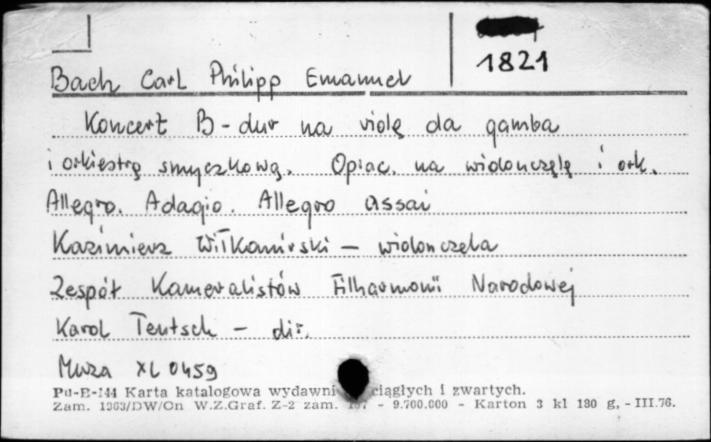 1821
Bach Carl Philipp Emanuel
Koncert B-dur na violę da gamba
i orkiestrę smyczkową. Oprac. na wiolonczelę i ork.
Allegro. Adagio. Allegro assai
Kazimierz Wiłkomirski - wiolonczela
Zespół Kameralistów Filharmonii Narodowej
Karol Teutsch - dir.
Muza XL 0459
Pu-E-144 Karta katalogowa wydawni ciągłych i zwartych.
Zam. 1363/DW/On W.Z.Graf. Z-2 zam. - 9.700.000 - Karton 3 kl 180 g, - III.76.